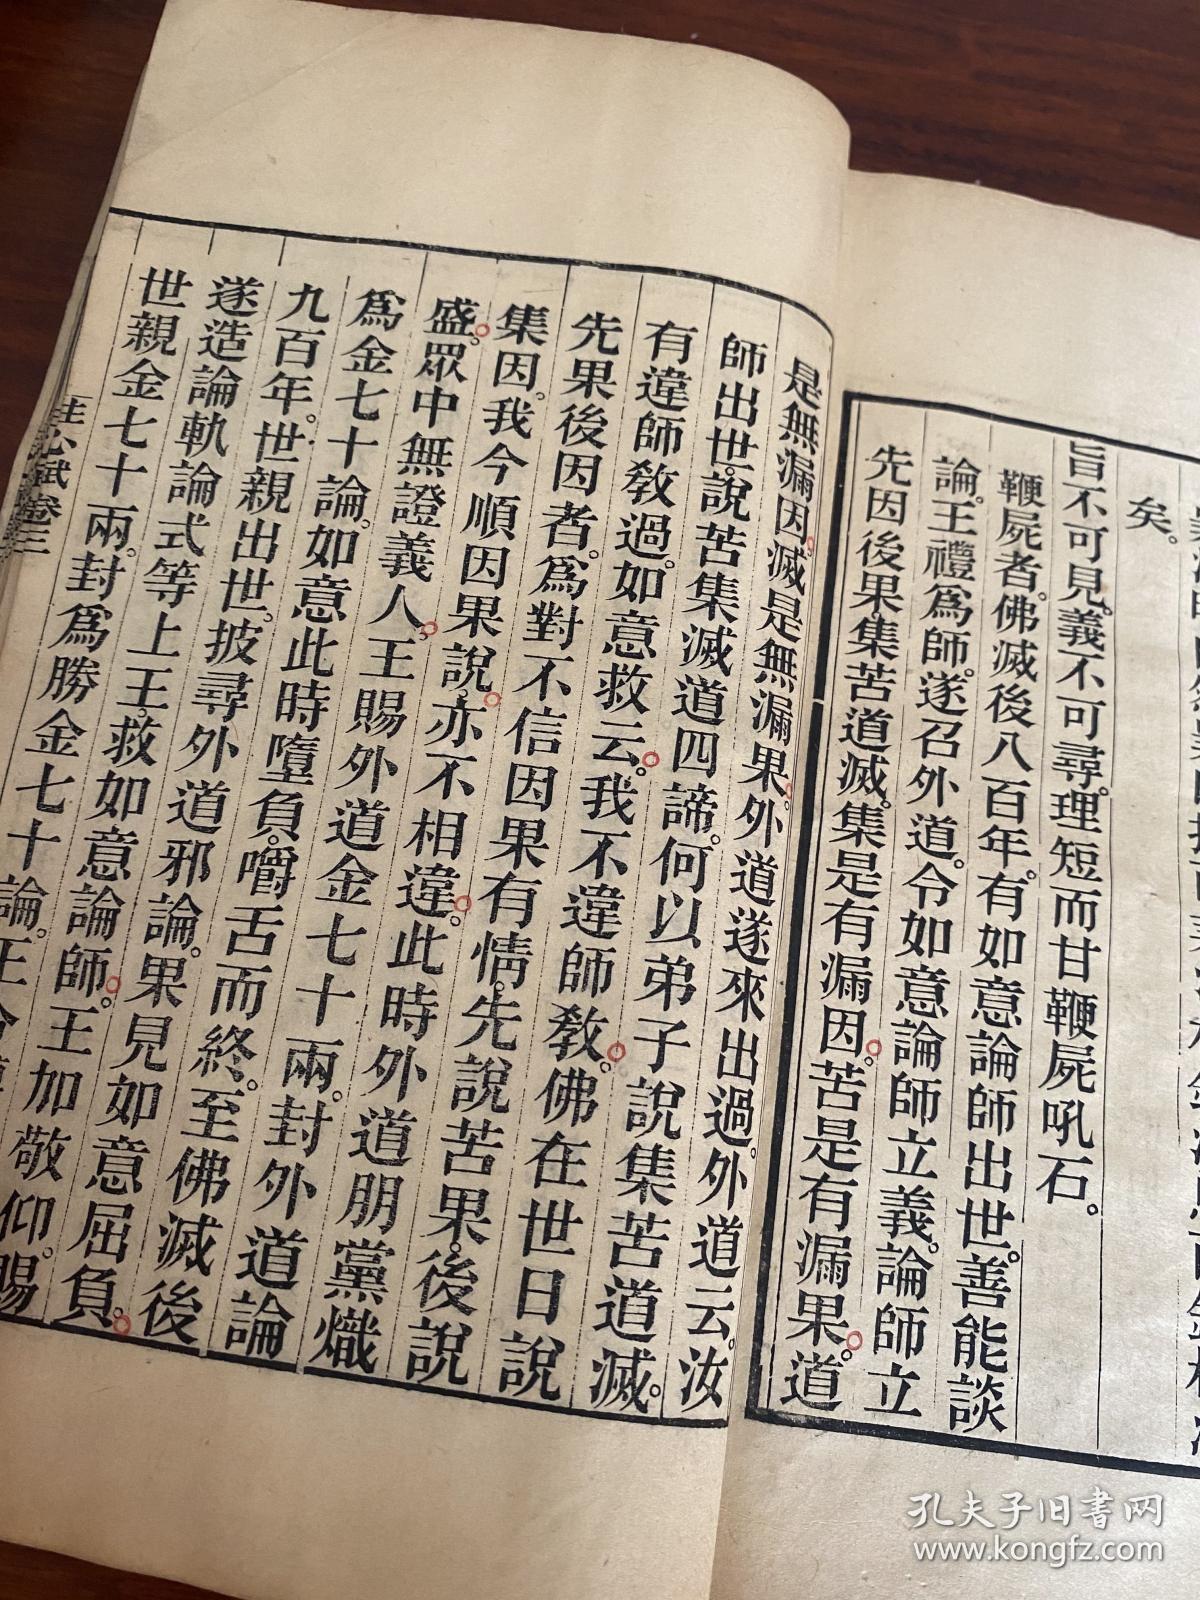 矣。
旨不可見。義不可尋。理短而甘鞭屍吼石。
鞭屍者。佛滅後八百年。有如意論師出世。善能談
論。王禮爲師。遂召外道。令如意論師立義。論師立
先因後果集苦道滅。集是有漏因。苦是有漏果。道
是無漏因。滅是無漏果。外道遂來出過。外道云。汝
師出世。說苦集滅道四諦。何以弟子說集苦道滅。
有違師敎過。如意救云。我不違師敎。佛在世日說
先果後因者。爲對不信因果有情。先說苦果。後說
集因。我今順因果說。亦不相違。此時外道朋黨熾
盛。眾中無證義人。王賜外道金七十兩。封外道論
爲金七十論。如意此時墮負。嚼舌而終。至佛滅後
九百年。世親出世。披尋外道邪論。果見如意屈負。
遂造論軌論式等上王。救如意論師。王加敬仰。賜
世親金七十兩。封爲勝金七十論。王
註心賦卷三
孔夫子旧书网
www.kongfz.com